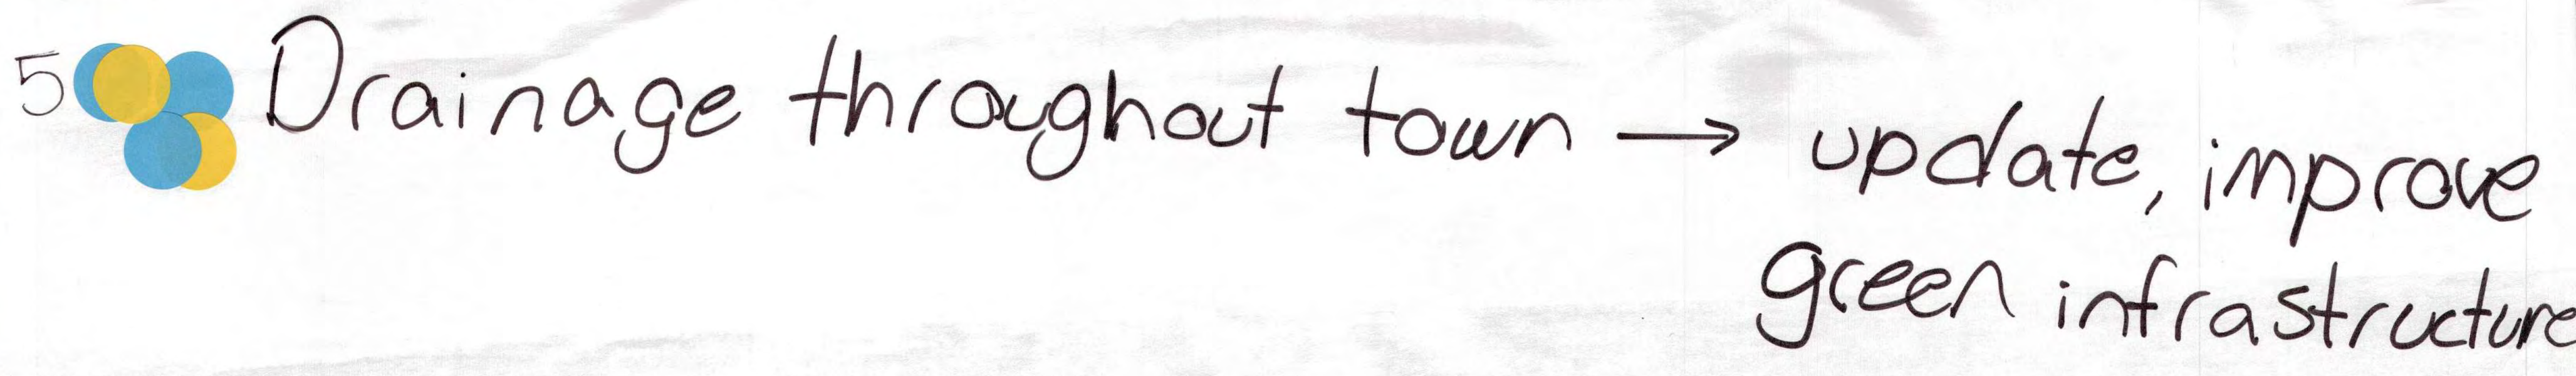 5 Drainage throughout town → update, improve
green infrastructure